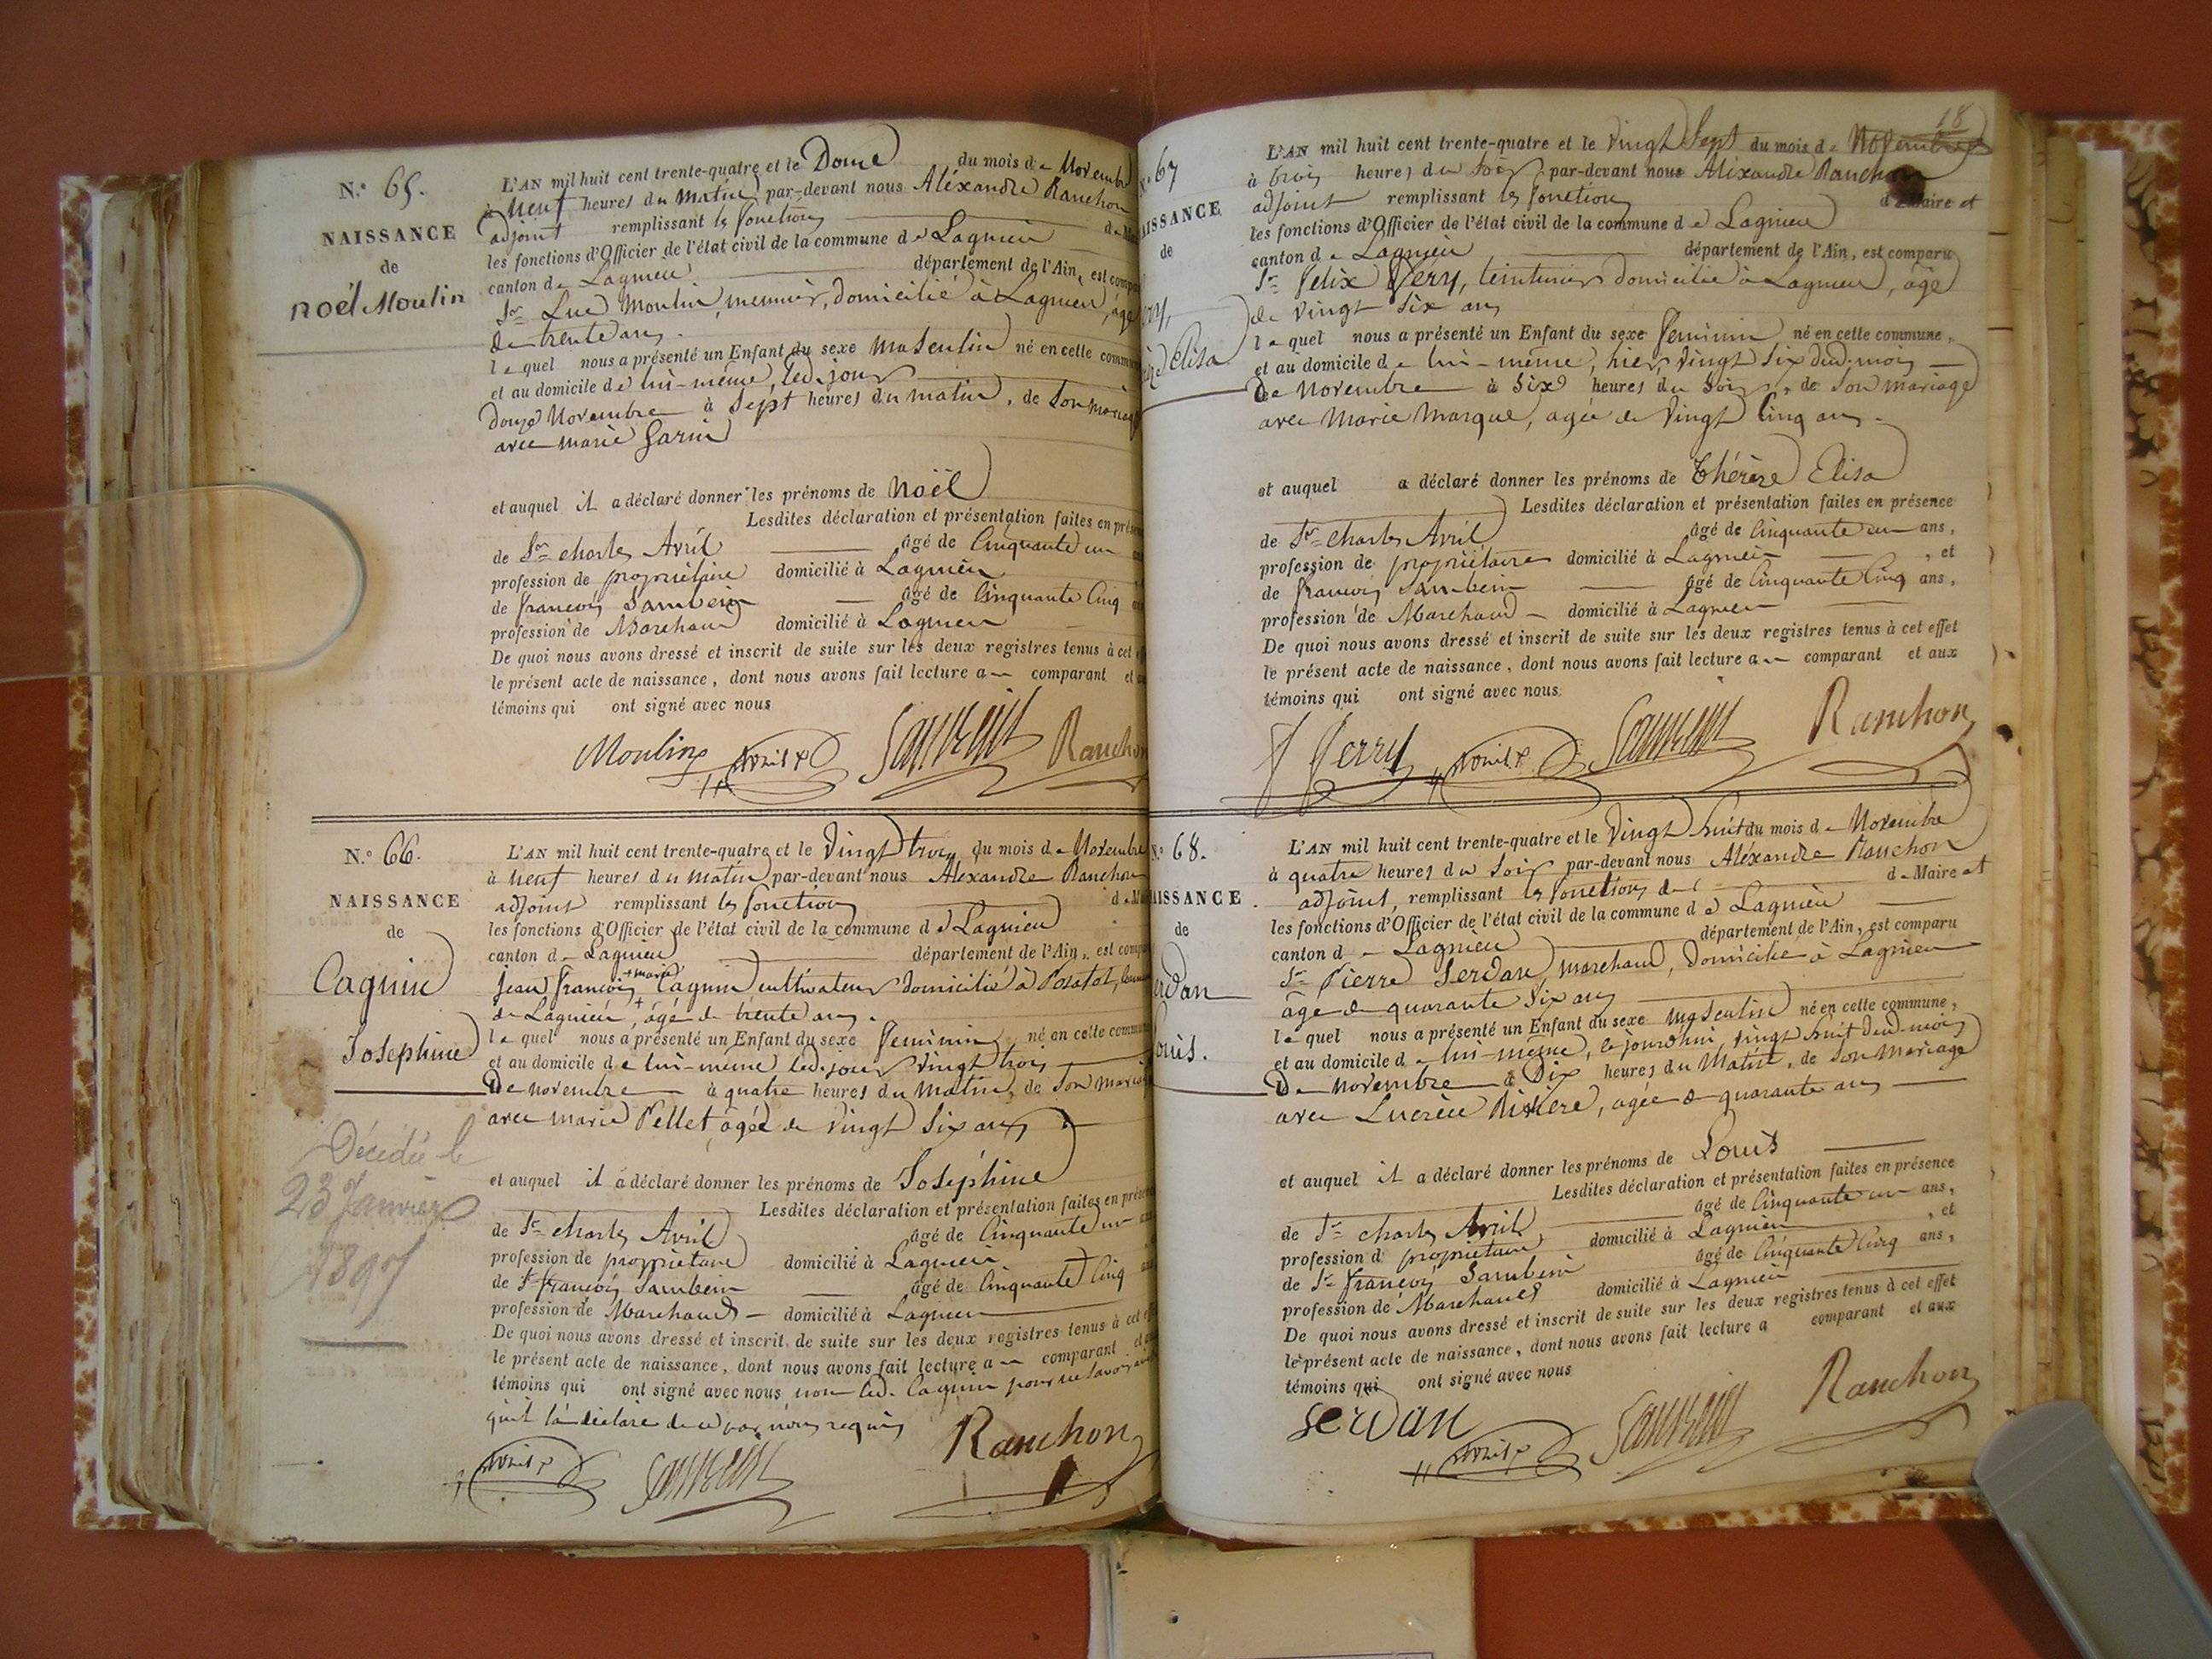 N.° 65.
NAISSANCE
de
Noël Moulin
L'AN mil huit cent trente-quatre et le Douze du mois de Novembre
à neuf heures du Matin par-devant nous Aléxandre Ranchon
adjoint remplissant les fonctions
les fonctions d'Officier de l'état civil de la commune de Lagnieu
canton de Lagnieu département de l'Ain, est
Sr Luc Moulin, meunier, domicilié à Lagnieu, âgé
de trente ans.
lequel nous a présenté un Enfant du sexe Masculin né en cette
et au domicile de lui-même, led. jour
douze Novembre à Sept heures du matin, de son mariage
avec marie Garin
et auquel il a déclaré donner les prénoms de Noël
Lesdites déclaration et présentation faites en
de Sr charles Avril âgé de Cinquante un
profession de propriétaire domicilié à Lagnieu
de françois Sambein âgé de Cinquante Cinq
profession de Marchand domicilié à Lagnieu
De quoi nous avons dressé et inscrit de suite sur les deux registres tenus à cet
le présent acte de naissance, dont nous avons fait lecture au comparant et
témoins qui ont signé avec nous
Moulin Avril Ranchon
N.° 66.
NAISSANCE
de
Cagnin
Josephine
Décédée le
23 Janvier
1897
L'AN mil huit cent trente-quatre et le Vingt trois du mois de Novembre
à neuf heures du matin par-devant nous Aléxandre Ranchon
adjoint remplissant les fonctions
les fonctions d'Officier de l'état civil de la commune de Lagnieu
canton de Lagnieu département de l'Ain, est
+ marie
Jean françois Cagnin cultivateur domicilié à Posafol,
de Lagnieu, + âgé de trente ans.
lequel nous a présenté un Enfant du sexe féminin né en cette
et au domicile de lui-même led. jour vingt trois
De novembre à quatre heures du Matin, de son mariage
avec marie Pellet âgée de vingt six ans
et auquel il a déclaré donner les prénoms de Joséphine
Lesdites déclaration et présentation faites en
de Sr charles Avril âgé de Cinquante un
profession de propriétaire domicilié à Lagnieu
de Sr françois Sambein âgé de Cinquante Cinq
profession de Marchand domicilié à Lagnieu
De quoi nous avons dressé et inscrit de suite sur les deux registres tenus à cet
le présent acte de naissance, dont nous avons fait lecture au comparant et
témoins qui ont signé avec nous non led. Cagnin pour ne savoir
qu'il l'a déclaré de ce par nous requis
Avril Ranchon
18
67
NAISSANCE
de
Elisa
L'AN mil huit cent trente-quatre et le vingt Sept du mois de Novembre
à trois heures du Soir par-devant nous Aléxandre Ranchon
adjoint remplissant les fonctions de Maire et
les fonctions d'Officier de l'état civil de la commune de Lagnieu
canton de Lagnieu département de l'Ain, est comparu
Sr Félix Verry, teinturier domicilié à Lagnieu, âgé
de vingt six ans
lequel nous a présenté un Enfant du sexe féminin né en cette commune,
et au domicile de lui-même, hier, vingt six dud. mois
De novembre à Six heures du Soir, de son mariage
avec Marie Marque, agée de vingt Cinq ans.
et auquel a déclaré donner les prénoms de Thérèse Elisa
Lesdites déclaration et présentation faites en présence
de Sr charles Avril âgé de Cinquante un ans,
profession de propriétaire domicilié à Lagnieu, et
de françois Sambein âgé de Cinquante Cinq ans,
profession de Marchand domicilié à Lagnieu
De quoi nous avons dressé et inscrit de suite sur les deux registres tenus à cet effet
le présent acte de naissance, dont nous avons fait lecture au comparant et aux
témoins qui ont signé avec nous
Avril Ranchon
N.° 68.
NAISSANCE
de
L'AN mil huit cent trente-quatre et le vingt huit du mois de Novembre
à quatre heures du Soir par-devant nous Aléxandre Ranchon
adjoint, remplissant les fonctions de Maire et
les fonctions d'Officier de l'état civil de la commune de Lagnieu
canton de Lagnieu département de l'Ain, est comparu
Sr Pierre Servan, marchand, domicilié à Lagnieu
âgé de quarante six ans
lequel nous a présenté un Enfant du sexe masculin né en cette commune,
et au domicile de lui-même, ce jourd'hui, vingt huit dud. mois
De novembre à Dix heures du Matin, de son mariage
avec Lucrèce Rivière, agée de quarante ans
et auquel il a déclaré donner les prénoms de Louis
Lesdites déclaration et présentation faites en présence
de Sr charles Avril âgé de Cinquante un ans,
profession d propriétaire domicilié à Lagnieu, et
de Sr françois Sambein âgé de Cinquante Cinq ans,
profession de Marchand domicilié à Lagnieu
De quoi nous avons dressé et inscrit de suite sur les deux registres tenus à cet effet
le présent acte de naissance, dont nous avons fait lecture a comparant et aux
témoins qui ont signé avec nous
Servan Avril Ranchon